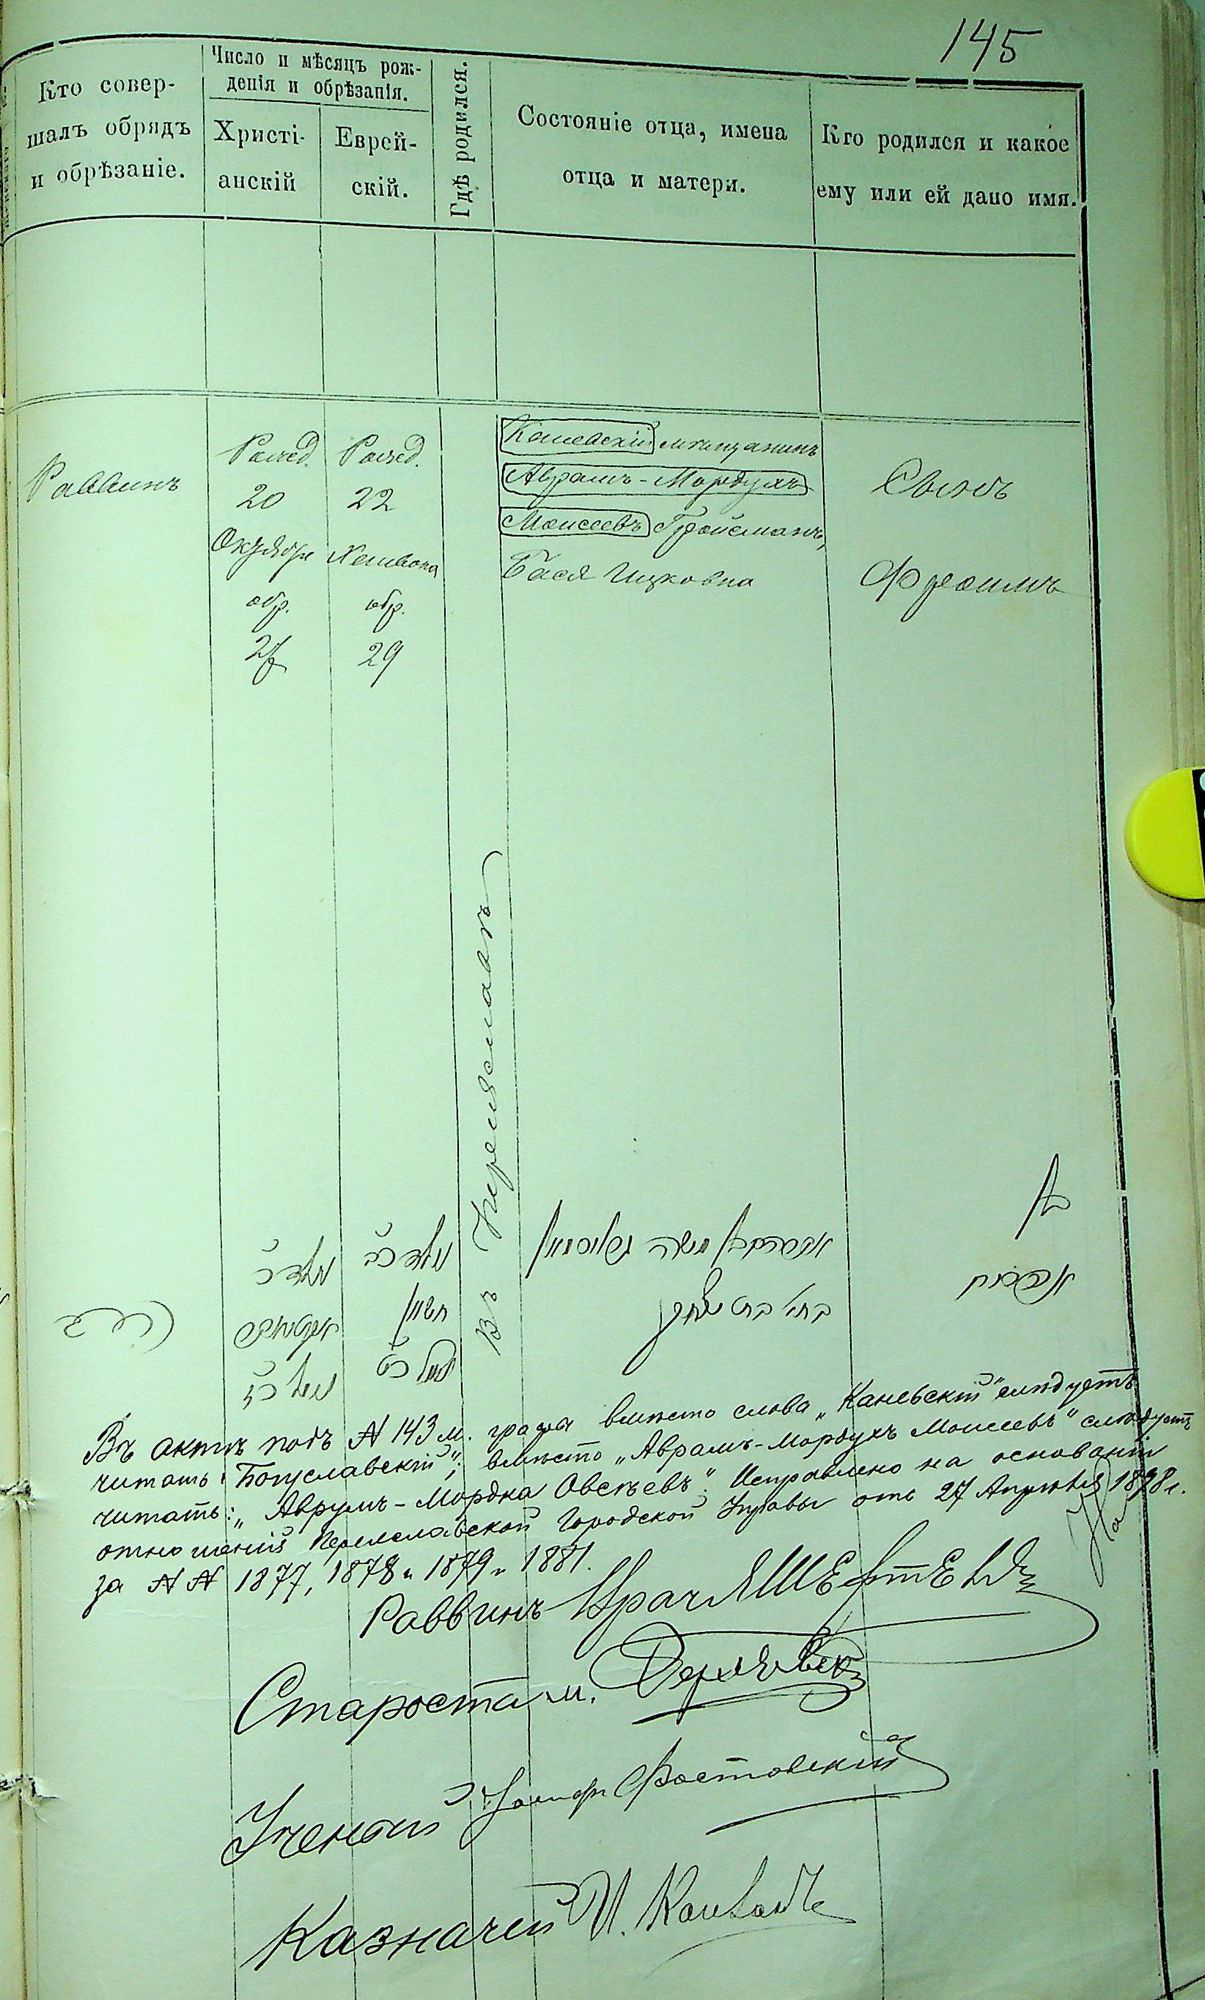 145
Кто совер-
шалъ обрядъ
и обрѣзаніе.
Число и мѣсяцъ рож-
денія и обрѣзанія.
Христі-
анскій
Еврей-
скій.
Гдѣ родился.
Состояніе отца, имена
отца и матери.
Кто родился и какое
ему или ей дано имя.
Раввинъ
Рожд.
20
Октября
обр.
27
Рожд.
22
Хешвона
обр.
29
Въ Переяславѣ
Каневскій мѣщанинъ
Аврамъ-Мордухъ
Моисеевъ Гройсманъ,
Бася Ицковна
Сынъ
Фроимъ
נולד כ
אקטאבר
נימול כז
נולד כב
חשון
נימול כט
אברהם משה גרויסמאן
בתי' בת יצחק
בן
אפרים
Въ актѣ подъ № 143 м. графа вмѣсто слова „Каневскій" слѣдуетъ
читать „Богуславскій"; вмѣсто „Аврамъ-Мордухъ Моисеевъ" слѣдуетъ
читать: „Аврумъ-Мордка Овсѣевъ". Исправлено на основаніи
отношеній Переяславской Городской Управы отъ 27 Апрѣля 1898 г.
за №№ 1877, 1878 и 1879 и 1881.
Раввинъ Врачъ
Староста м.
Ученый Ростовскій
Казначей И.